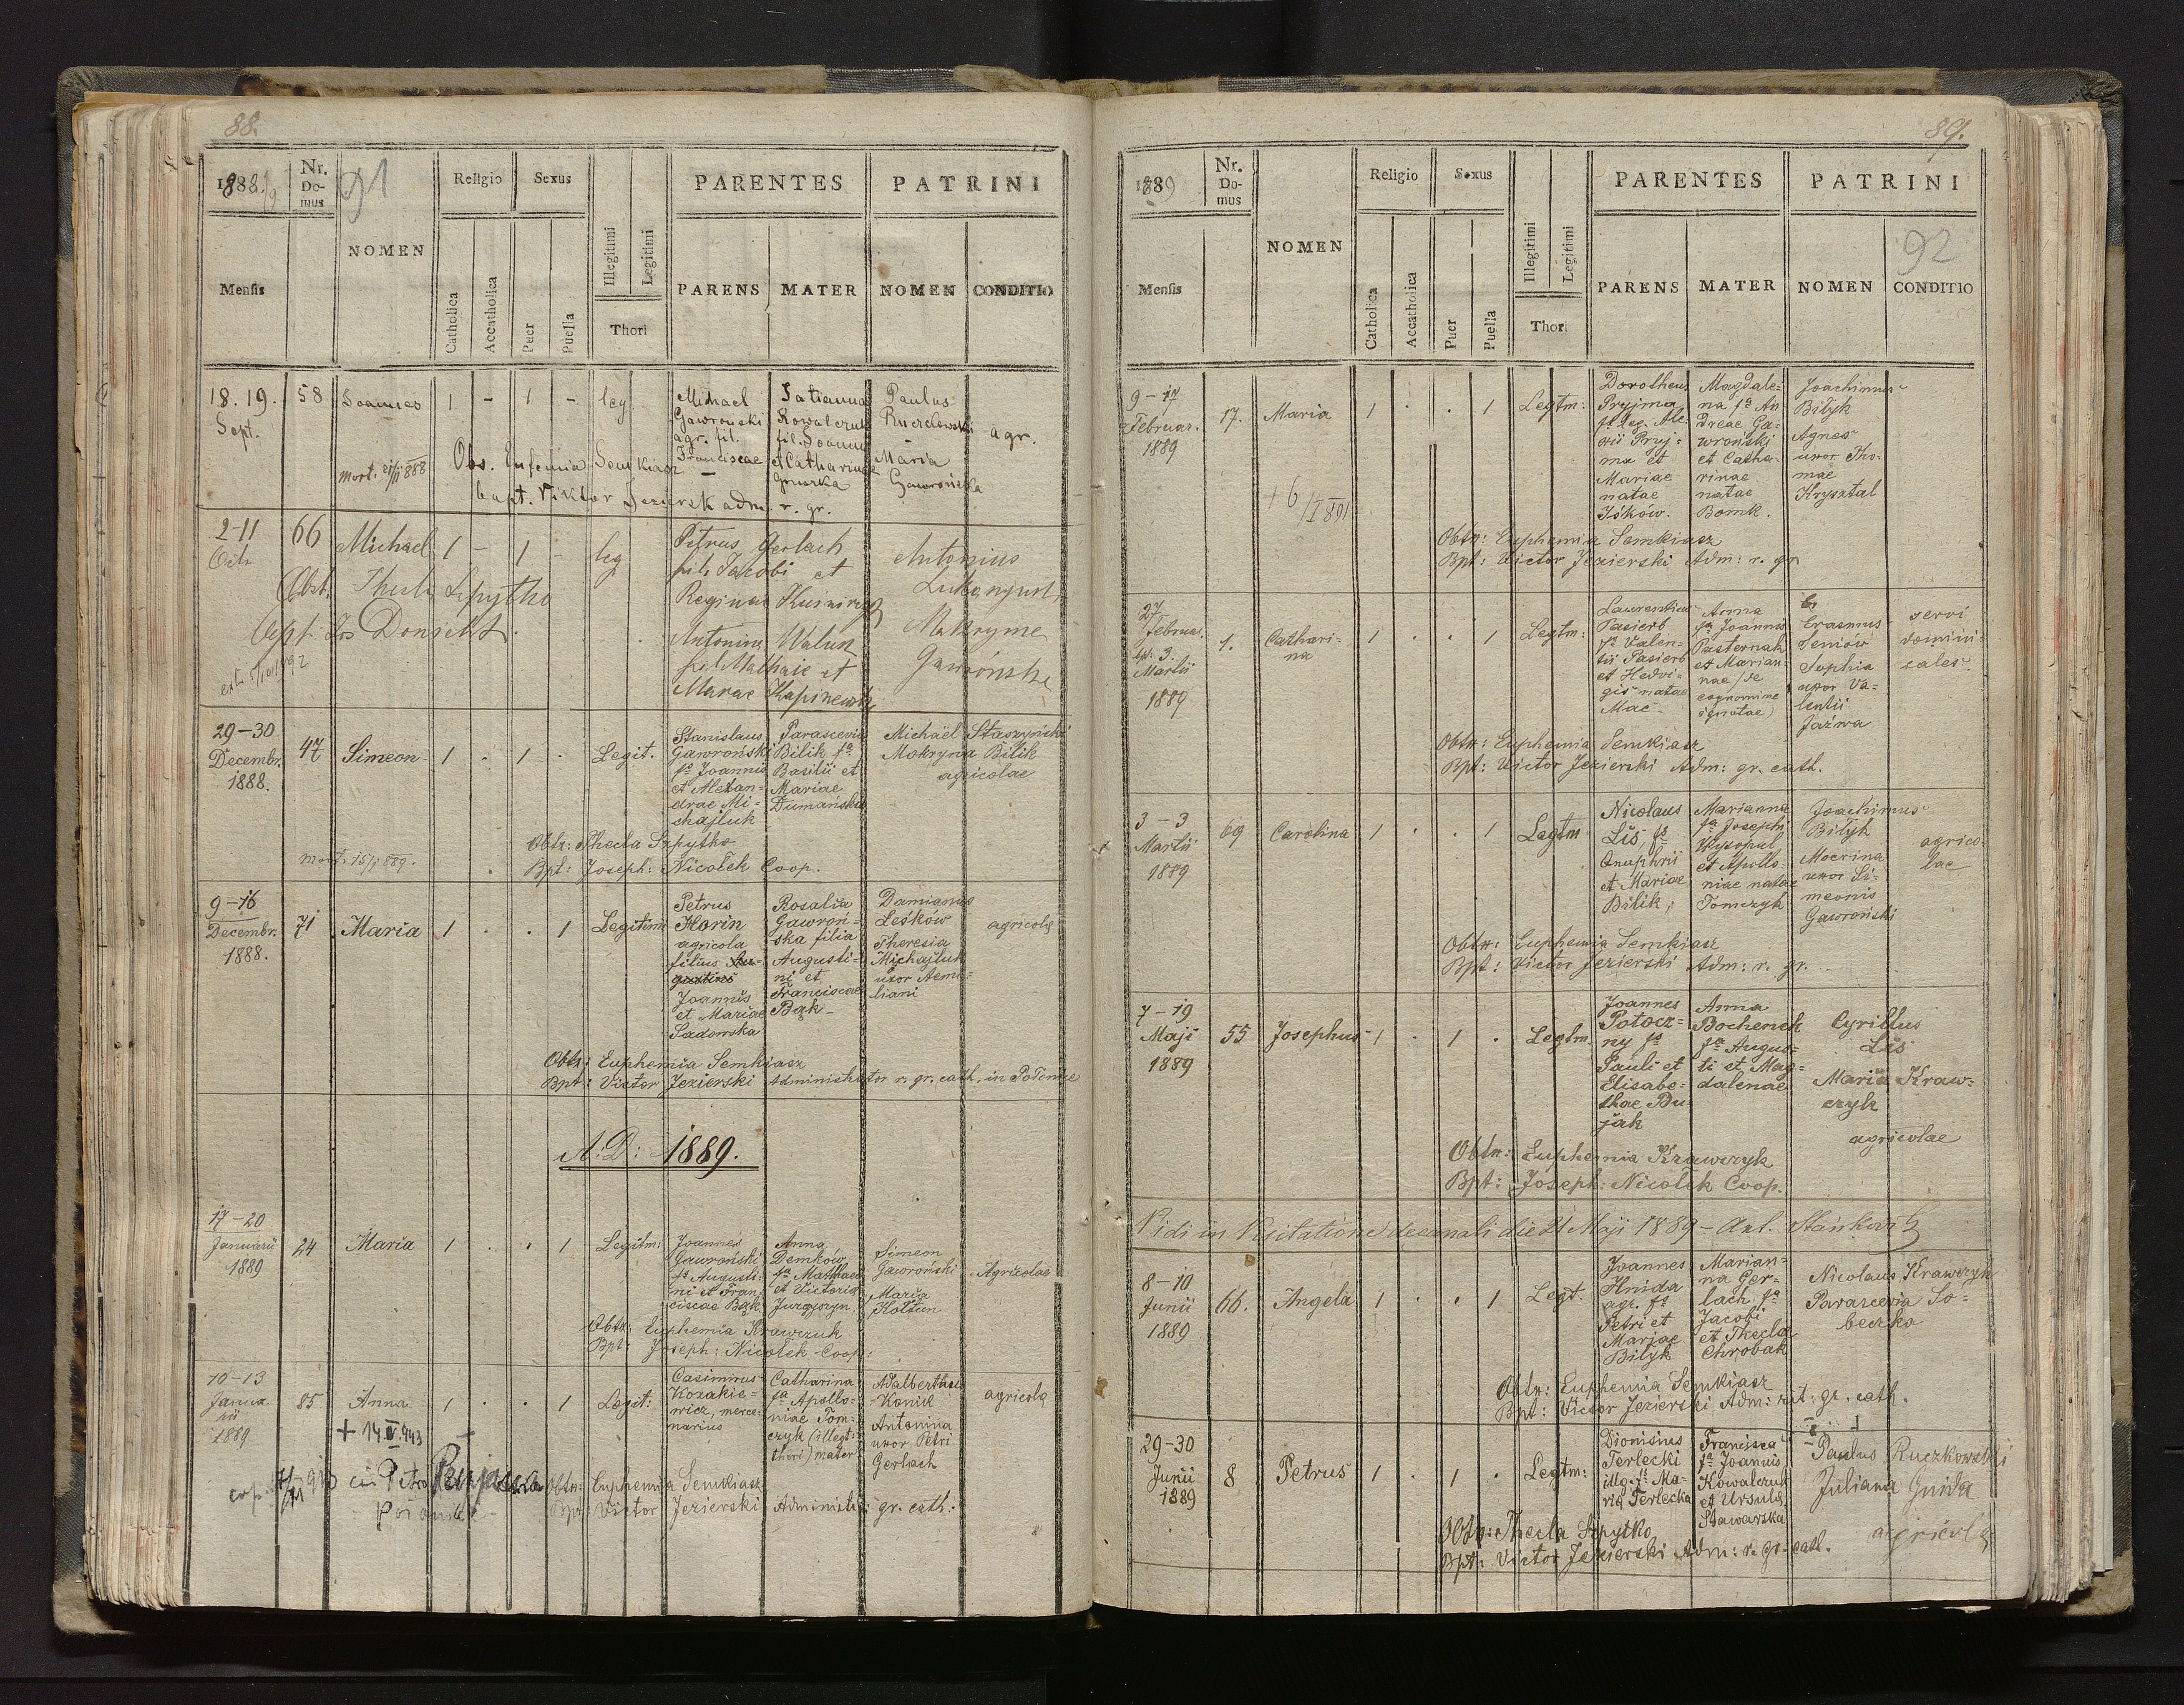 88.
1888/9
Nr. Do-mus
91
NOMEN
Religio
Sexus
PARENTES
PATRINI
Mensis
Catholica
Accatholica
Puer
Puella
Illegitimi
Legitimi
Thori
PARENS
MATER
NOMEN
CONDITIO
18. 19. Sept.
58
Joannes
1 - 1 - leg.
Michael
Gawronski
agr. fil.
Franciscae
Tatianna
Kowalczuk
fil. Joannis
et Catharinae
Paulus
Maria
Gawrońska
agr.
Obs. Eufemia Semkiasz
bapt. Viktor Jezierski adm. r. gr.
2-11
Octr
66
Michael
1 - 1 - leg
Petrus Gerlach
fil. Jacobi et
Reginae
Antonina Waluk
fil. Mathaie et
Mariae
Antonius
Makryme
Gawrońska
Obst. Thecla Szpytko
29-30
Decembr.
1888.
47
Simeon
1 . 1 . Legit.
Stanislaus
Gawroński
fs Joannis
et Alexan-
drae Mi-
chajluk
Parascevia
Bilik fa
Basilii et
Mariae
Dumańska
Michaël Staszyński
Mokryna Bilik
agricolae
Obtr: Thecla Szpytko
mort. 15/1 889.
Bpt: Joseph: Nicołek Coop.
9-16
Decembr.
1888.
71
Maria
1 . . 1 Legitim
Petrus
Horin
agricola
filius Au-
gustini
Joannis
et Mariae
Sadowska
Rosalia
Gawroń-
ska filia
Augusti-
ni et
Franciscae
Bąk
Damianus
Leśków
Theresia
Michajluk
uxor Aemi-
liani
agricola
Obtr: Euphemia Semkiasz
Bpt: Victor Jezierski Administrator r. gr. cath. in
A: D: 1889.
17-20
Januarii
1889
24
Maria
1 . . 1 Legitm:
Joannes
Gawroński
fs Augusti-
ni et Fran-
ciscae Bąk
Anna
Demków
fa Mathaei
et Victoria
Simeon
Gawroński
Maria
Kołtun
Agricolae
Obtr: Euphemia Krawczuk
Bpt: Joseph: Nicołek Coop:
10-13
Janua-
rii
1889
85
Anna
1 . . 1 Legit:
Casimirus
Kozakie-
wicz, merce-
narius
Catharina
fa Apollo-
niae Tom-
czyk (illegt:
thori) mater
Adalberthus
Konik
Antonina
uxor Petri
Gerlach
agricola
Obtr: Euphemia Semkiasz
Bpt: Victor Jezierski Administr: gr. cath:
89.
1889
Nr. Do-mus
NOMEN
Religio
Sexus
PARENTES
PATRINI
92
Mensis
Catholica
Accatholica
Puer
Puella
Illegitimi
Legitimi
Thori
PARENS
MATER
NOMEN
CONDITIO
9-17
Februar.
1889
17.
Maria
1 . . 1 Legtm:
Dorotheus
Pryjma
xii Pryj-
ma et
Mariae
natae
Iśków.
Magdale-
na fa An-
dreae Ga-
wroński
et Catha-
rinae
natae
Bomk.
Joachimus
Bilyk
Agnes
uxor Tho-
mae
Krysztal
+ 6/I 891
Obtr: Euphemia Semkiasz
Bpt: Victor Jezierski Adm: r. gr.
27
Februar.
bpt: 3.
Martii
1889
1.
Cathari-
na
1 . . 1 Legtm:
Laurentius
Pasierb
fs Valen-
tii Pasierb
et Hedvi-
gis natae
Mac
Anna
fa Joannis
Pasternak
et Marian-
nae (de
cognomine
ignotae)
Erasmus
Seniów
Sophia
uxor Va-
lentii
Jaźwa
servi
domini-
cales
Obtr: Euphemia Semkiasz
Bpt: Victor Jezierski Adm: gr. cath.
3-3
Martii
1889
69
Carolina
1 . . 1 Legtm
Nicolaus
Liś, fs
Onuphrii
et Mariae
Bilik,
Marianna
fa Josephi
Wysopal
et Apollo-
niae natae
Tomczyk
Joachimus
Bilyk
Mocrina
uxor Si-
meonis
Gawroński
agrico-
lae
Obtr: Euphemia Semkiasz
Bpt: Victor Jezierski Adm: r. gr.
7-19
Maji
1889
55
Josephus
1 . 1 . Legtm
Joannes
Potocz-
ny fs
Pauli et
Elisabe-
thae Bu-
jak
Anna
Bochenek
fa Augus-
ti et Mag-
dalenae
Cyrillus
Liś
Maria Kraw-
czyk
agricolae
Obtr: Euphemia Krawczyk
Bpt: Joseph: Nicołek Coop.
Vidi in Visitatione decanali die 21 Maji 1889 - Ant.
8-10
Junii
1889
66.
Angela
1 . . 1 Legt.
Joannes
Hnida
agr. fs
Petri et
Mariae
Bilyk
Marian-
na Ger-
lach fa
Jacobi
et Thecla
Chrobak
Nicolaus Krawczyk
Parascevia So-
beczko
Obtr: Euphemia Semkiasz
Bpt: Victor Jezierski Adm: rit: gr. cath.
29-30
Junii
1889
8
Petrus
1 . 1 . Legtm:
Dionisius
Terlecki
illg. fs Ma-
ria Terlecka
Francisca
fa Joannis
Kowalczuk
et Ursula
Stawarska
Paulus Ruczkowski
Juliana Gunda
agricola
Obtr: Thecla Szpytko
Bpt: Victor Jezierski Adm: r. gr. cath.